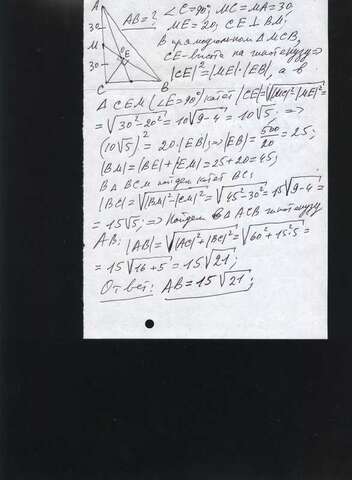 A
30
M
30
C
E
B
AB=? ∠C=90°, MC=MA=30
ME=20, CE⊥BM;
В прямоугольном ΔMCB,
CE-высота на гипотенузу ⇒
|CE|²=|ME|·|EB|, а в
ΔCEM (∠E=90°) катет |CE|=√|MC|²-|ME|²=
=√30²-20²=10√9-4=10√5, ⇒
(10√5)²=20·|EB|; ⇒|EB|=500/20=25;
|BM|=|BE|+|EM|=25+20=45;
В ΔBCM найдем катет BC:
|BC|=√|BM|²-|CM|²=√45²-30²=15√9-4=
=15√5; ⇒ Найдем в ΔACB гипотенузу
AB: |AB|=√|AC|²+|BC|²=√60²+15²·5=
=15√16+5=15√21;
Ответ: AB=15√21;